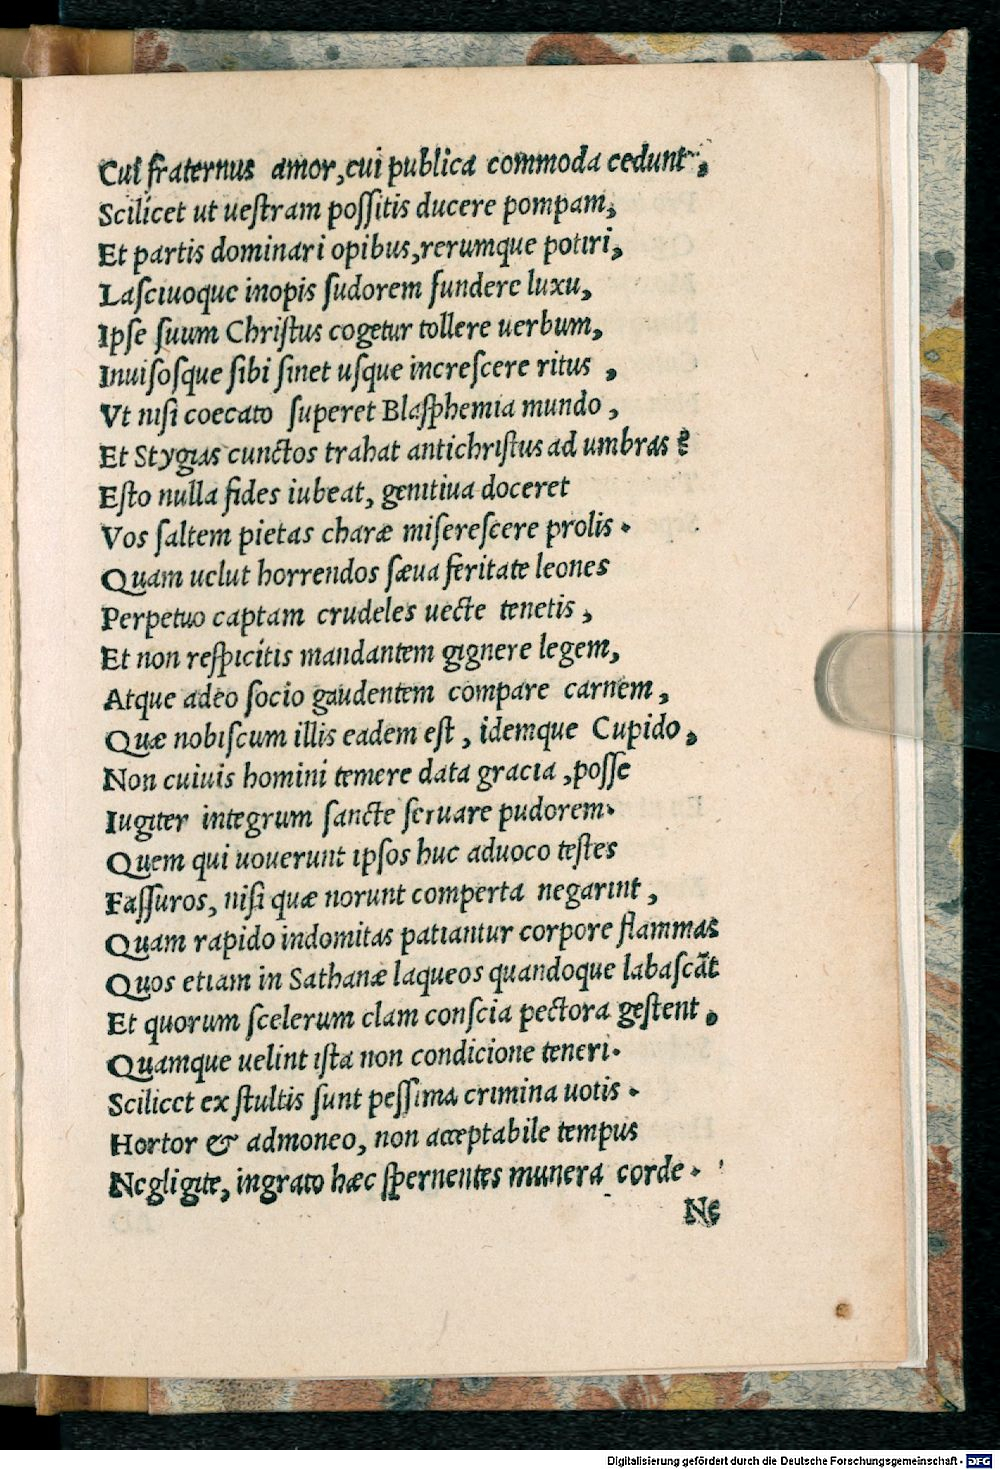 Cui fraternus amor, cui publica commoda cedunt,
Scilicet ut ueſtram poſſitis ducere pompam,
Et partis dominari opibus, rerumque potiri,
Laſciuoque inopis ſudorem fundere luxu,
Ipſe ſuum Chriſtus cogetur tollere uerbum,
Inuiſoſque ſibi ſinet uſque increſcere ritus ,
Vt niſi coecato ſuperet Blaſphemia mundo ,
Et Stygias cunctos trahat antichriſtus ad umbras ?
Eſto nulla fides iubeat, genitiua doceret
Vos ſaltem pietas charæ miſereſcere prolis .
Quam uelut horrendos ſæua feritate leones
Perpetuo captam crudeles uecte tenetis ,
Et non reſpicitis mandantem gignere legem,
Atque adeo ſocio gaudentem compare carnem ,
Quæ nobiſcum illis eadem eſt , idemque Cupido ,
Non cuiuis homini temere data gracia ,poſſe
Iugiter integrum ſancte ſeruare pudorem.
Quem qui uouerunt ipſos huc aduoco teſtes
Faſſuros, niſi quæ norunt comperta negarint ,
Quam rapido indomitas patiantur corpore flammas
Quos etiam in Sathanæ laqueos quandoque labaſcāt
Et quorum ſcelerum clam conſcia pectora geſtent ,
Quamque uelint iſta non condicione teneri.
Scilicet ex ſtultis ſunt peſſima crimina uotis .
Hortor & admoneo, non acceptabile tempus
Negligite, ingrato hæc ſpernentes munera corde .
Ne
Digitalisierung gefördert durch die Deutsche Forschungsgemeinschaft - DFG